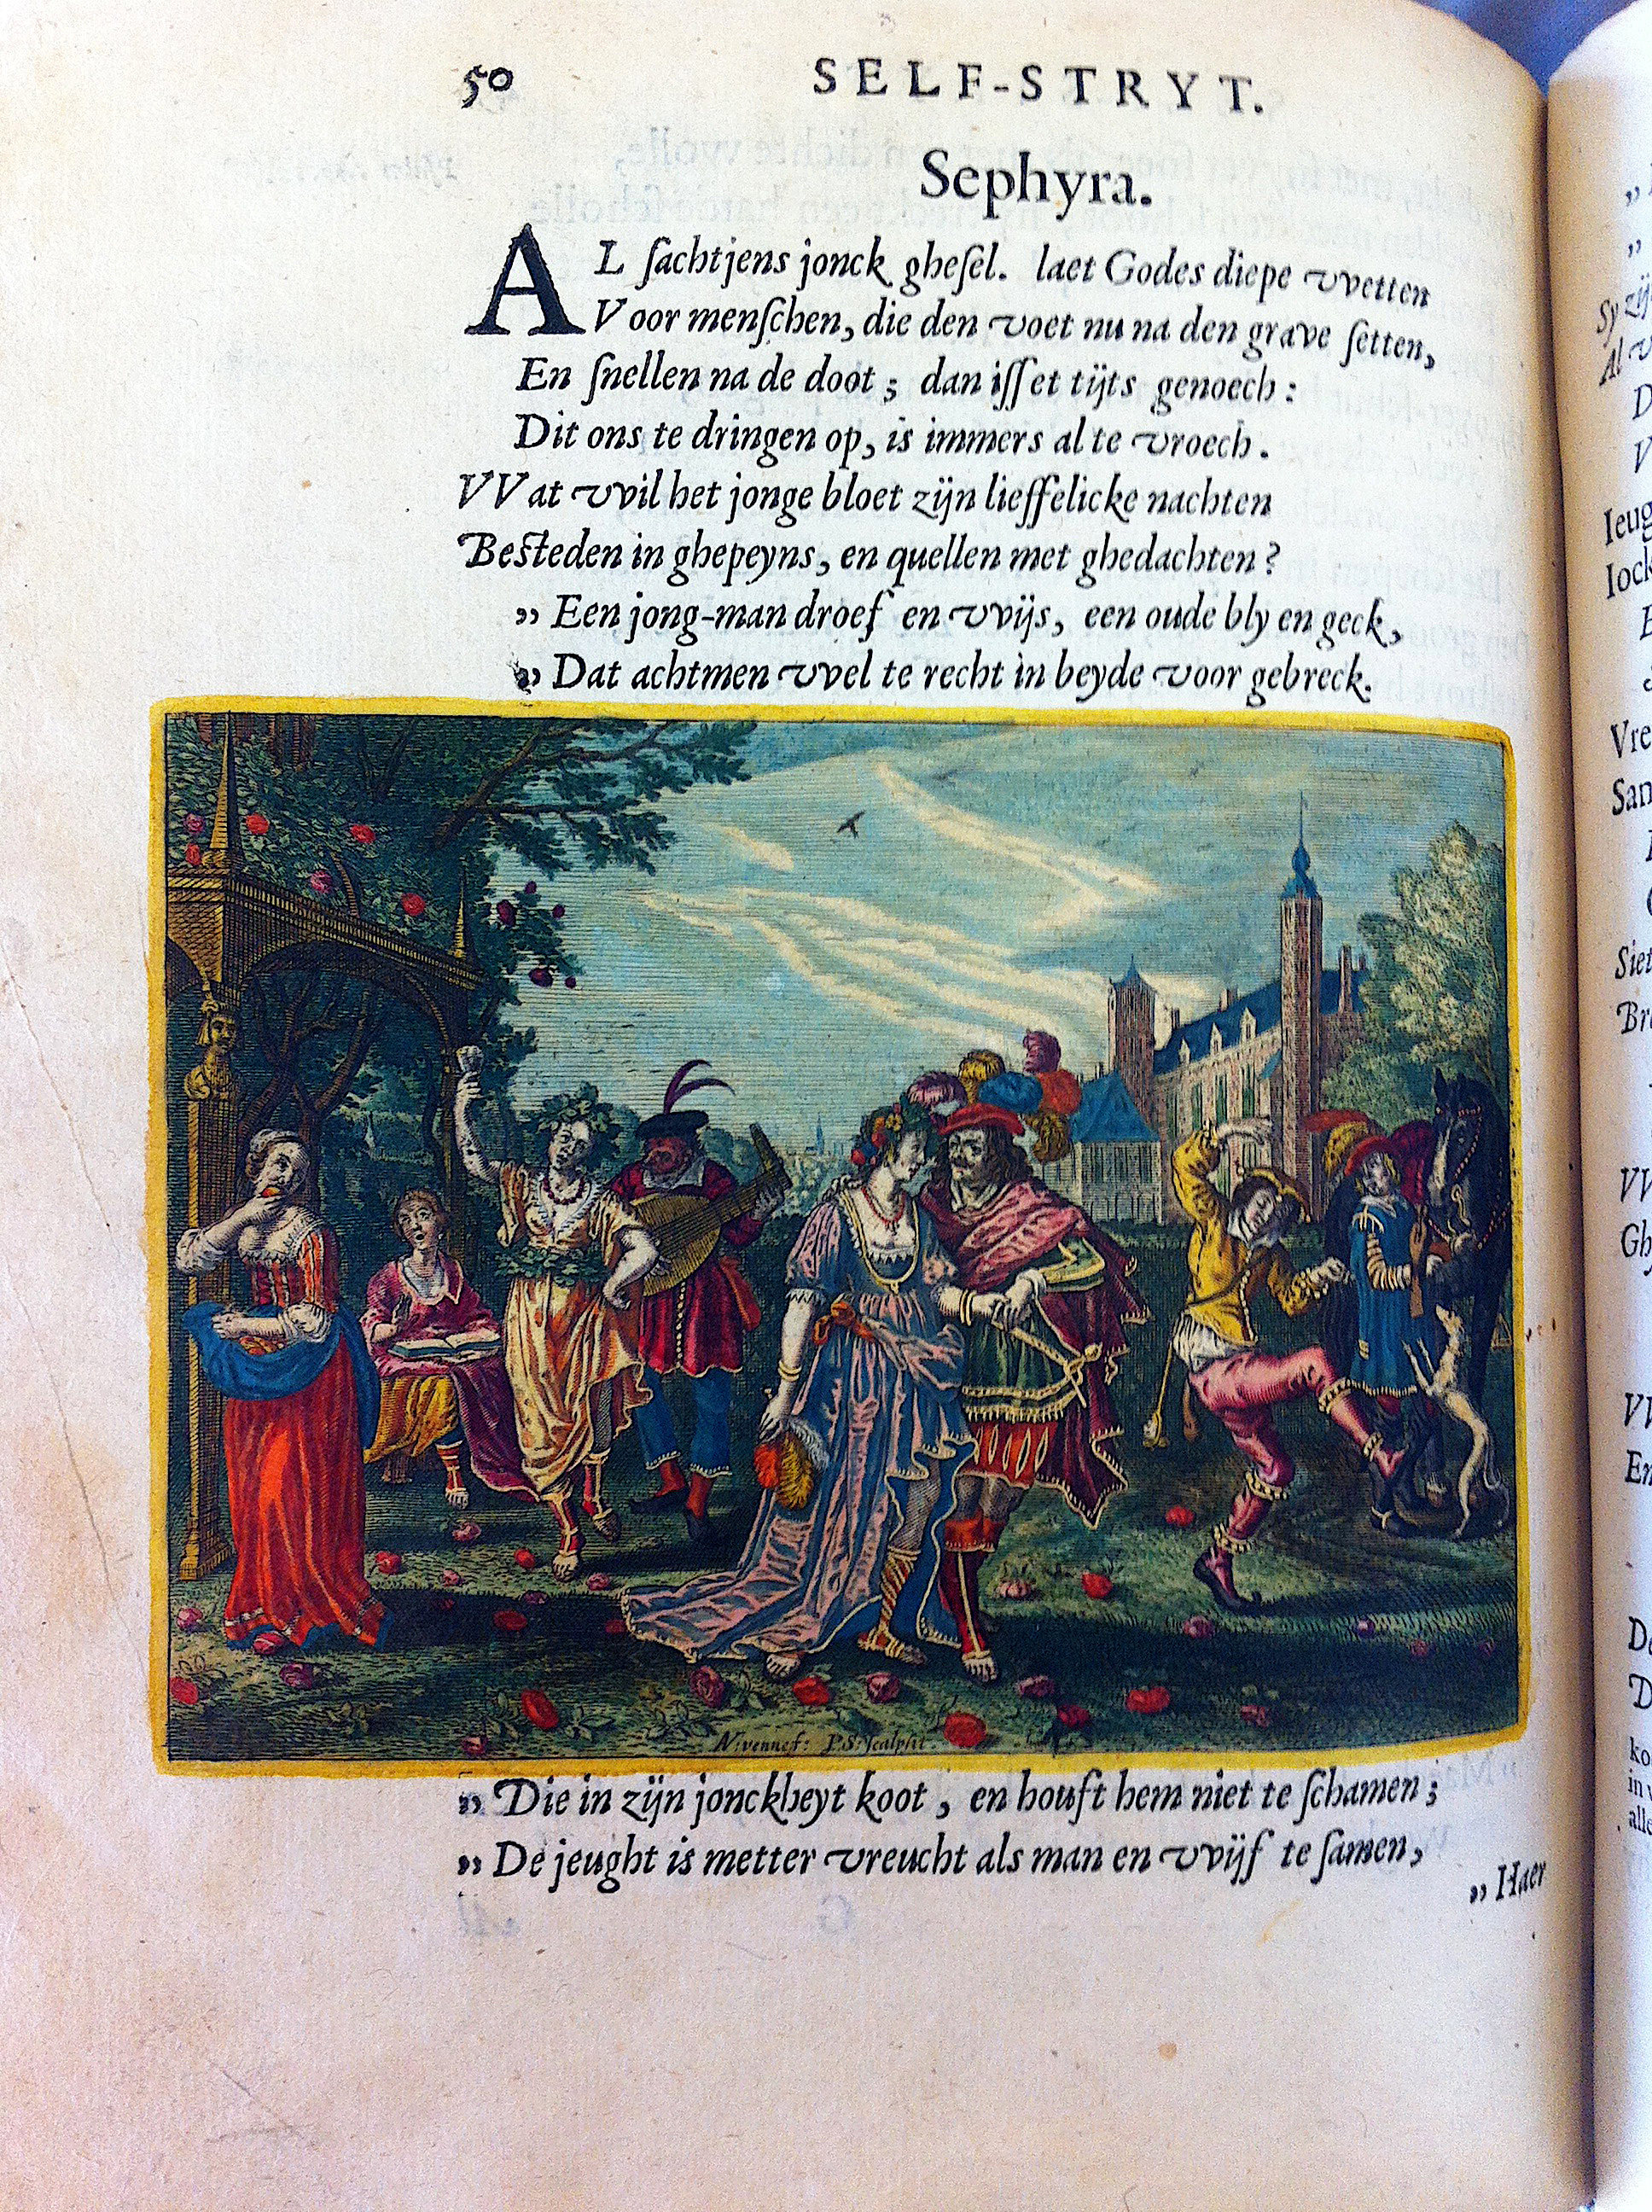 50 SELF-STRYT.
Sephyra.
AL ſachtjens jonck gheſel. laet Godes diepe vvetten
Voor menſchen, die den voet nu na den grave ſetten,
En ſnellen na de doot; dan iſſet tijts genoech:
Dit ons te dringen op, is immers al te vroech.
VVat vvil het jonge bloet zijn lieffelicke nachten
Beſteden in ghepeyns, en quellen met ghedachten?
„ Een jong-man droef en vvijs, een oude bly en geck,
„ Dat achtmen vvel te recht in beyde voor gebreck.
P.S. ſculpſit.
„ Die in zijn jonckheyt koot, en houft hem niet te ſchamen;
„ De jeught is metter vreucht als man en vvijf te ſamen,
„ Haer